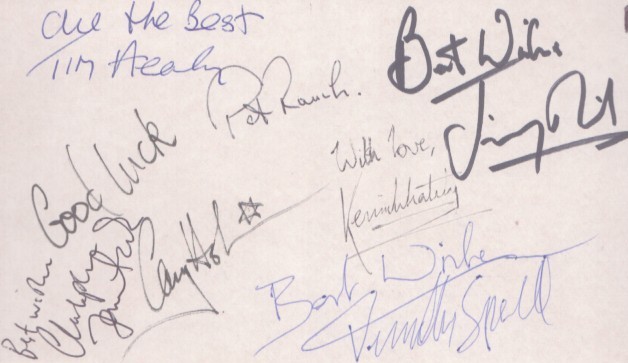 All the Best
Tim Healy
Best Wishes
Jimmy Nail
Pat Roach.
With love,
Kevin Whately
Good Luck
Gary Holton
Best wishes
Christopher
Fairbank
Best Wishes
Timothy Spall